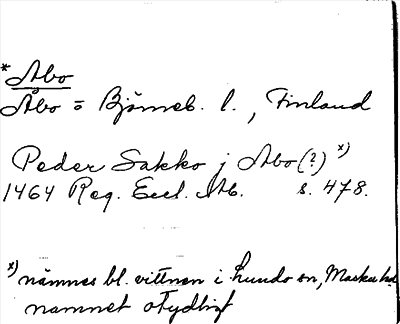 * Abo
Åbo o Björneb. l., Finland
Peder Sakko j Abo (?) x)
1464 Reg. Eccl. Ab. s. 478.
x) nämnes bl. vittnen i Lundo sn, Masku hd.
namnet otydligt